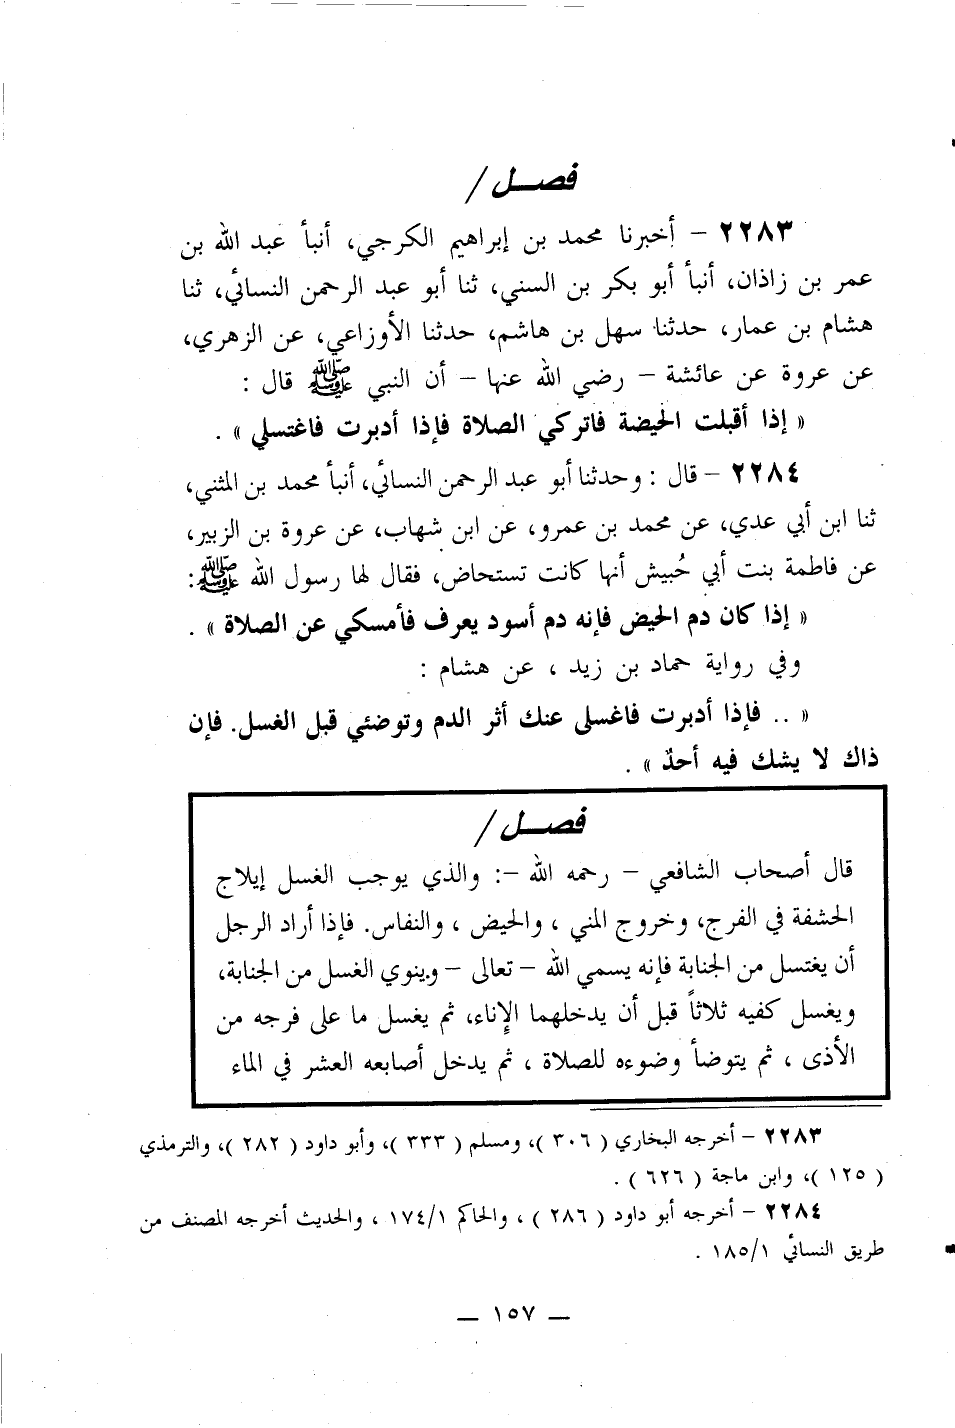 فصـــل /
٢٢٨٣ – أخبرنا محمد بن إبراهيم الكرجي، أنبأ عبد الله بن
عمر بن زاذان، أنبأ أبو بكر بن السني، ثنا أبو عبد الرحمن النسائي، ثنا
هشام بن عمار، حدثنا سهل بن هاشم، حدثنا الأوزاعي، عن الزهري،
عن عروة عن عائشة – رضي الله عنها – أن النبي ﷺ قال :
« إذا أقبلت الحيضة فاتركي الصلاة فإذا أدبرت فاغتسلي » .
٢٢٨٤ – قال : وحدثنا أبو عبد الرحمن النسائي، أنبأ محمد بن المثني،
ثنا ابن أبي عدي، عن محمد بن عمرو، عن ابن شهاب، عن عروة بن الزبير،
عن فاطمة بنت أبي حُبيش أنها كانت تستحاض، فقال لها رسول الله ﷺ:
« إذا كان دم الحيض فإنه دم أسود يعرف فأمسكي عن الصلاة » .
وفي رواية حماد بن زيد ، عن هشام :
« .. فإذا أدبرت فاغسلى عنك أثر الدم وتوضئي قبل الغسل. فإن
ذاك لا يشك فيه أحدٌ » .
فصـــل /
قال أصحاب الشافعي – رحمه الله –: والذي يوجب الغسل إيلاج
الحشفة في الفرج، وخروج المني ، والحيض ، والنفاس. فإذا أراد الرجل
أن يغتسل من الجنابة فإنه يسمي الله – تعالى – وينوي الغسل من الجنابة،
ويغسل كفيه ثلاثاً قبل أن يدخلهما الإناء، ثم يغسل ما على فرجه من
الأذى ، ثم يتوضأ وضوءه للصلاة ، ثم يدخل أصابعه العشر في الماء
٢٢٨٣ – أخرجه البخاري ( ٣٠٦ )، ومسلم ( ٣٣٣ )، وأبو داود ( ٢٨٢ )، والترمذي
( ١٢٥ )، وابن ماجة ( ٦٢٦ ) .
٢٢٨٤ – أخرجه أبو داود ( ٢٨٦ ) ، والحاكم ١٧٤/١ ، والحديث أخرجه المصنف من
طريق النسائي ١٨٥/١ .
— ١٥٧ —